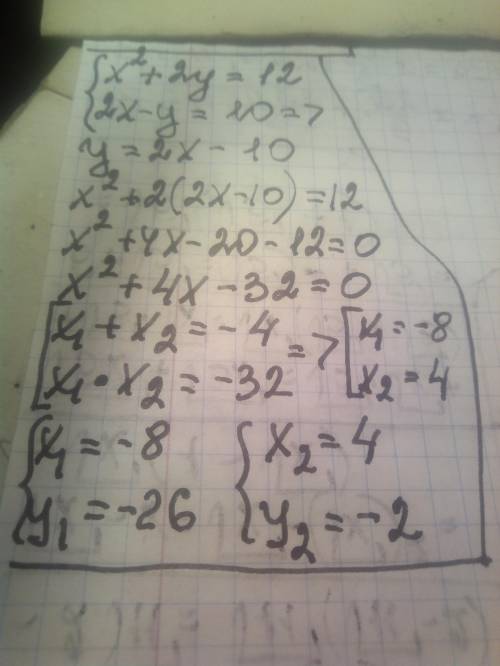 {x² + 2y = 12
{2x - y = 10 =>
y = 2x - 10
x² + 2(2x - 10) = 12
x² + 4x - 20 - 12 = 0
x² + 4x - 32 = 0
[x₁ + x₂ = -4
[x₁ • x₂ = -32 => [x₁ = -8
[x₂ = 4
{x₁ = -8 {x₂ = 4
{y₁ = -26 {y₂ = -2